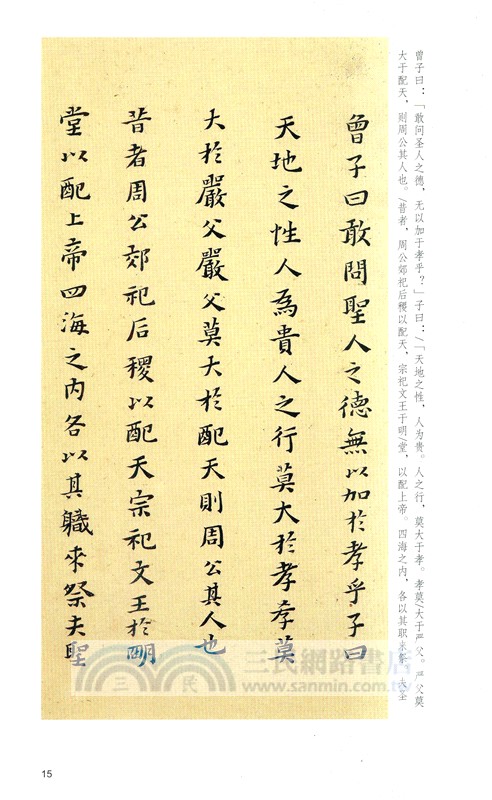 曾子曰：「敢问圣人之德，无以加于孝乎？」子曰：/「天地之性，人为贵。人之行，莫大于孝。孝莫/大于严父。严父莫
大于配天，则周公其人也。/昔者，周公郊祀后稷以配天，宗祀文王于明/堂，以配上帝。四海之内，各以其职来祭。夫圣
曾子曰敢問聖人之德無以加於孝乎子曰
天地之性人為貴人之行莫大於孝孝莫
大於嚴父嚴父莫大於配天則周公其人也
昔者周公郊祀后稷以配天宗祀文王於明
堂以配上帝四海之内各以其職來祭夫聖
三民網路書店
三民
www.sanmin.com.tw
15